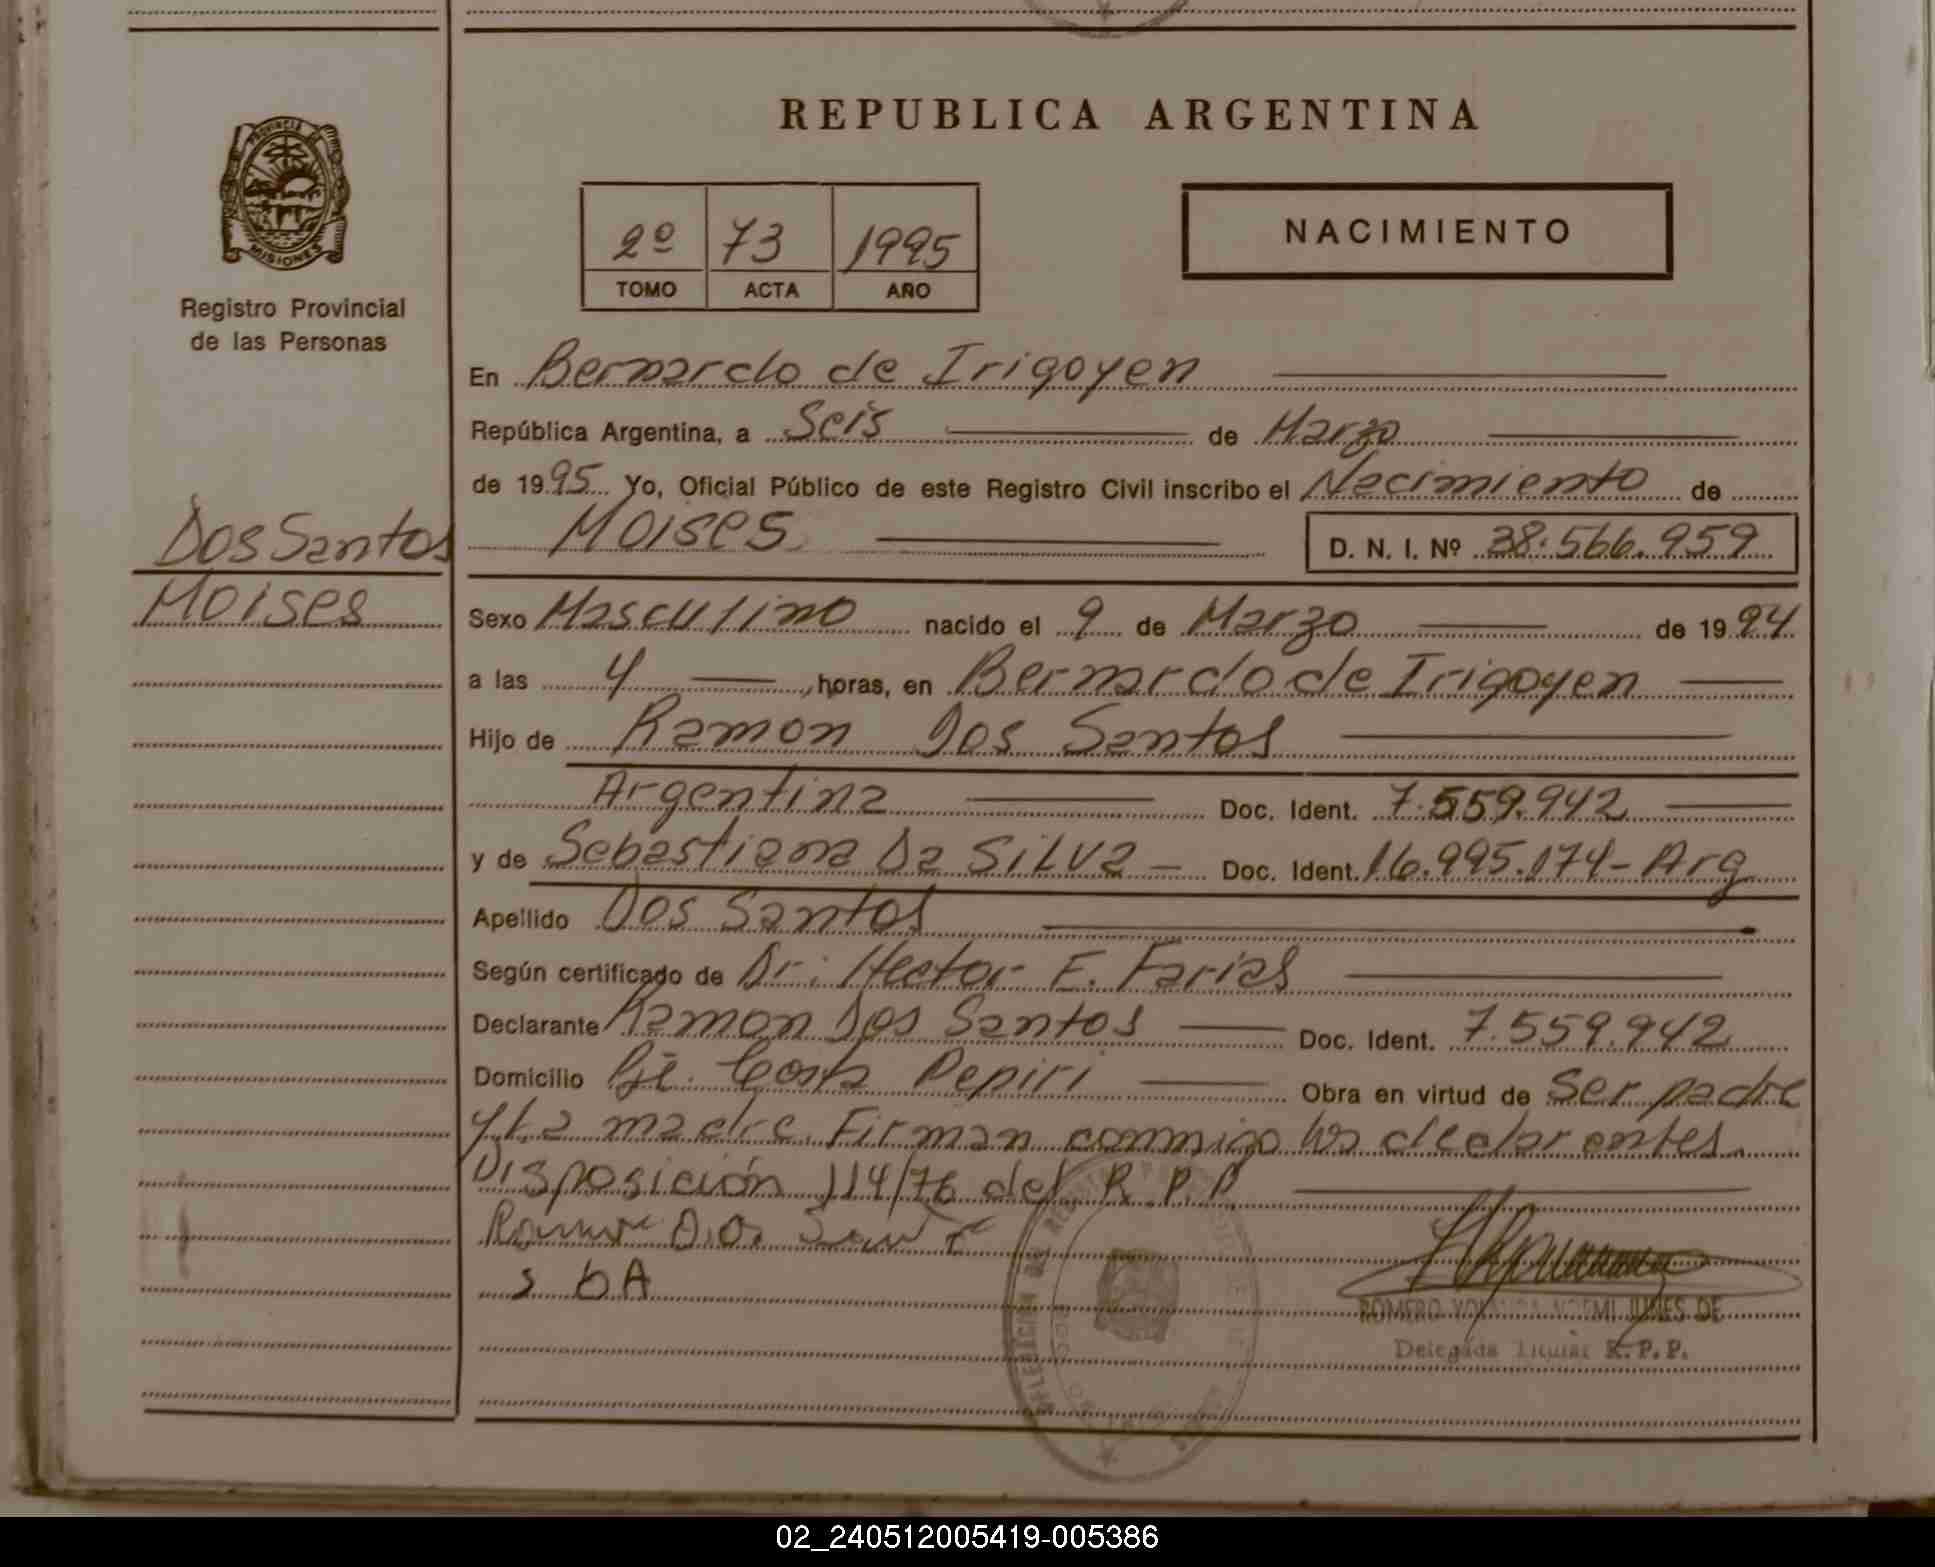 REPUBLICA ARGENTINA
PROVINCIA DE
MISIONES
Registro Provincial
de las Personas
2º 73 1995
TOMO ACTA AÑO
NACIMIENTO
En Bernardo de Irigoyen
República Argentina, a Seis de Marzo
de 1995 Yo, Oficial Público de este Registro Civil inscribo el Nacimiento de
Dos Santos
Moises
Moises D. N. I. Nº 38.566.959
Sexo Masculino nacido el 9 de Marzo de 1994
a las 4 horas, en Bernardo de Irigoyen
Hijo de Ramon Dos Santos
Argentina Doc. Ident. 7.559.942
y de Sebastiana Da Silva Doc. Ident. 16.995.174 - Arg
Apellido Dos Santos
Según certificado de Dr: Hector E. Farias
Declarante Ramon Dos Santos Doc. Ident. 7.559.942
Domicilio Pje. Pepiri Obra en virtud de Ser padre
y la madre. Firman conmigo los declarantes.
Disposición 114/76 del R.P.P
ROMERO NOEMI DE
Delegada R.P.P.
02_240512005419-005386